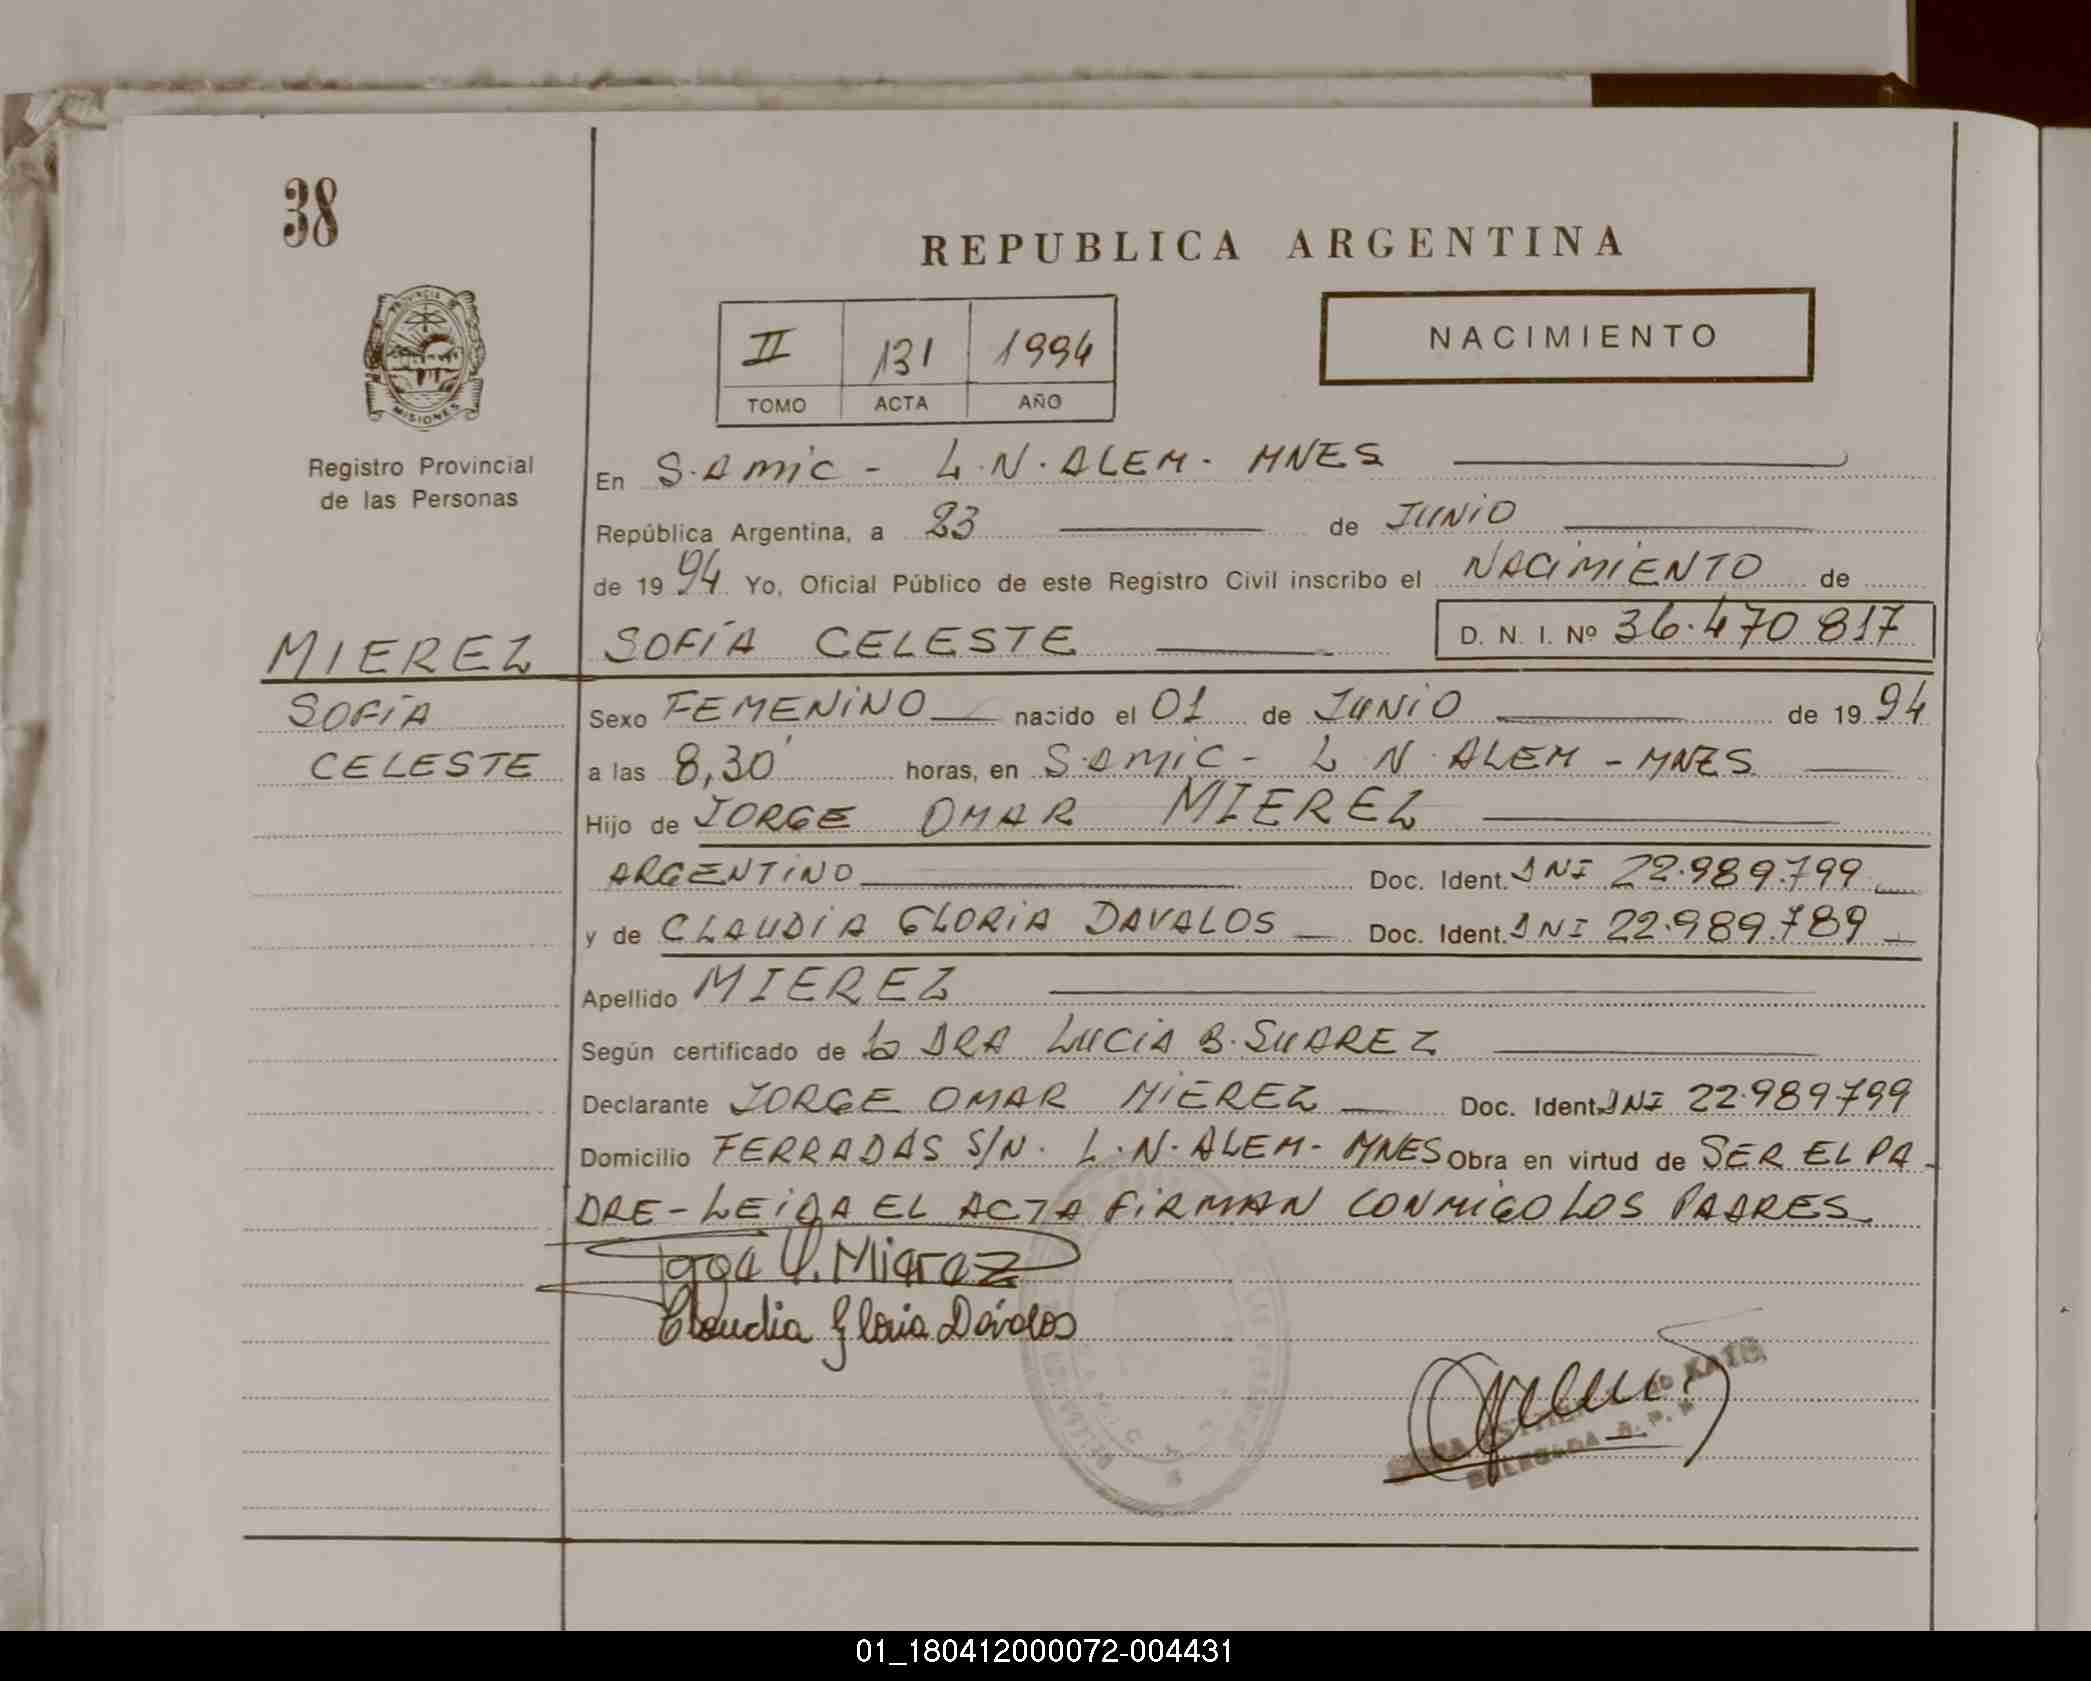 38
REPUBLICA ARGENTINA
II 131 1994
TOMO ACTA AÑO
NACIMIENTO
PROVINCIA DE
MISIONES
Registro Provincial
de las Personas
En S.AMIC - L.N.ALEM - MNES
República Argentina, a 23 de JUNIO
de 1994 Yo, Oficial Público de este Registro Civil inscribo el NACIMIENTO de
MIEREZ SOFÍA CELESTE D. N. I. Nº 36.470 817
SOFÍA Sexo FEMENINO nacido el 01 de JUNIO de 1994
CELESTE a las 8,30' horas, en S.AMIC - L N ALEM - MNES
Hijo de JORGE OMAR MIEREZ
ARGENTINO Doc. Ident. DNI 22.989.799
y de CLAUDIA GLORIA DAVALOS Doc. Ident. DNI 22.989.789
Apellido MIEREZ
Según certificado de la DRA LUCIA B. SUAREZ
Declarante JORGE OMAR MIEREZ Doc. Ident. DNI 22.989.799
Domicilio FERRADAS S/N. L.N.ALEM - MNES Obra en virtud de SER EL PA-
DRE - LEIDA EL ACTA FIRMAN CONMIGO LOS PADRES
Jorge O. Mierez
Claudia Gloria Dávalos
DELEGADA R. P. P.
01_180412000072-004431